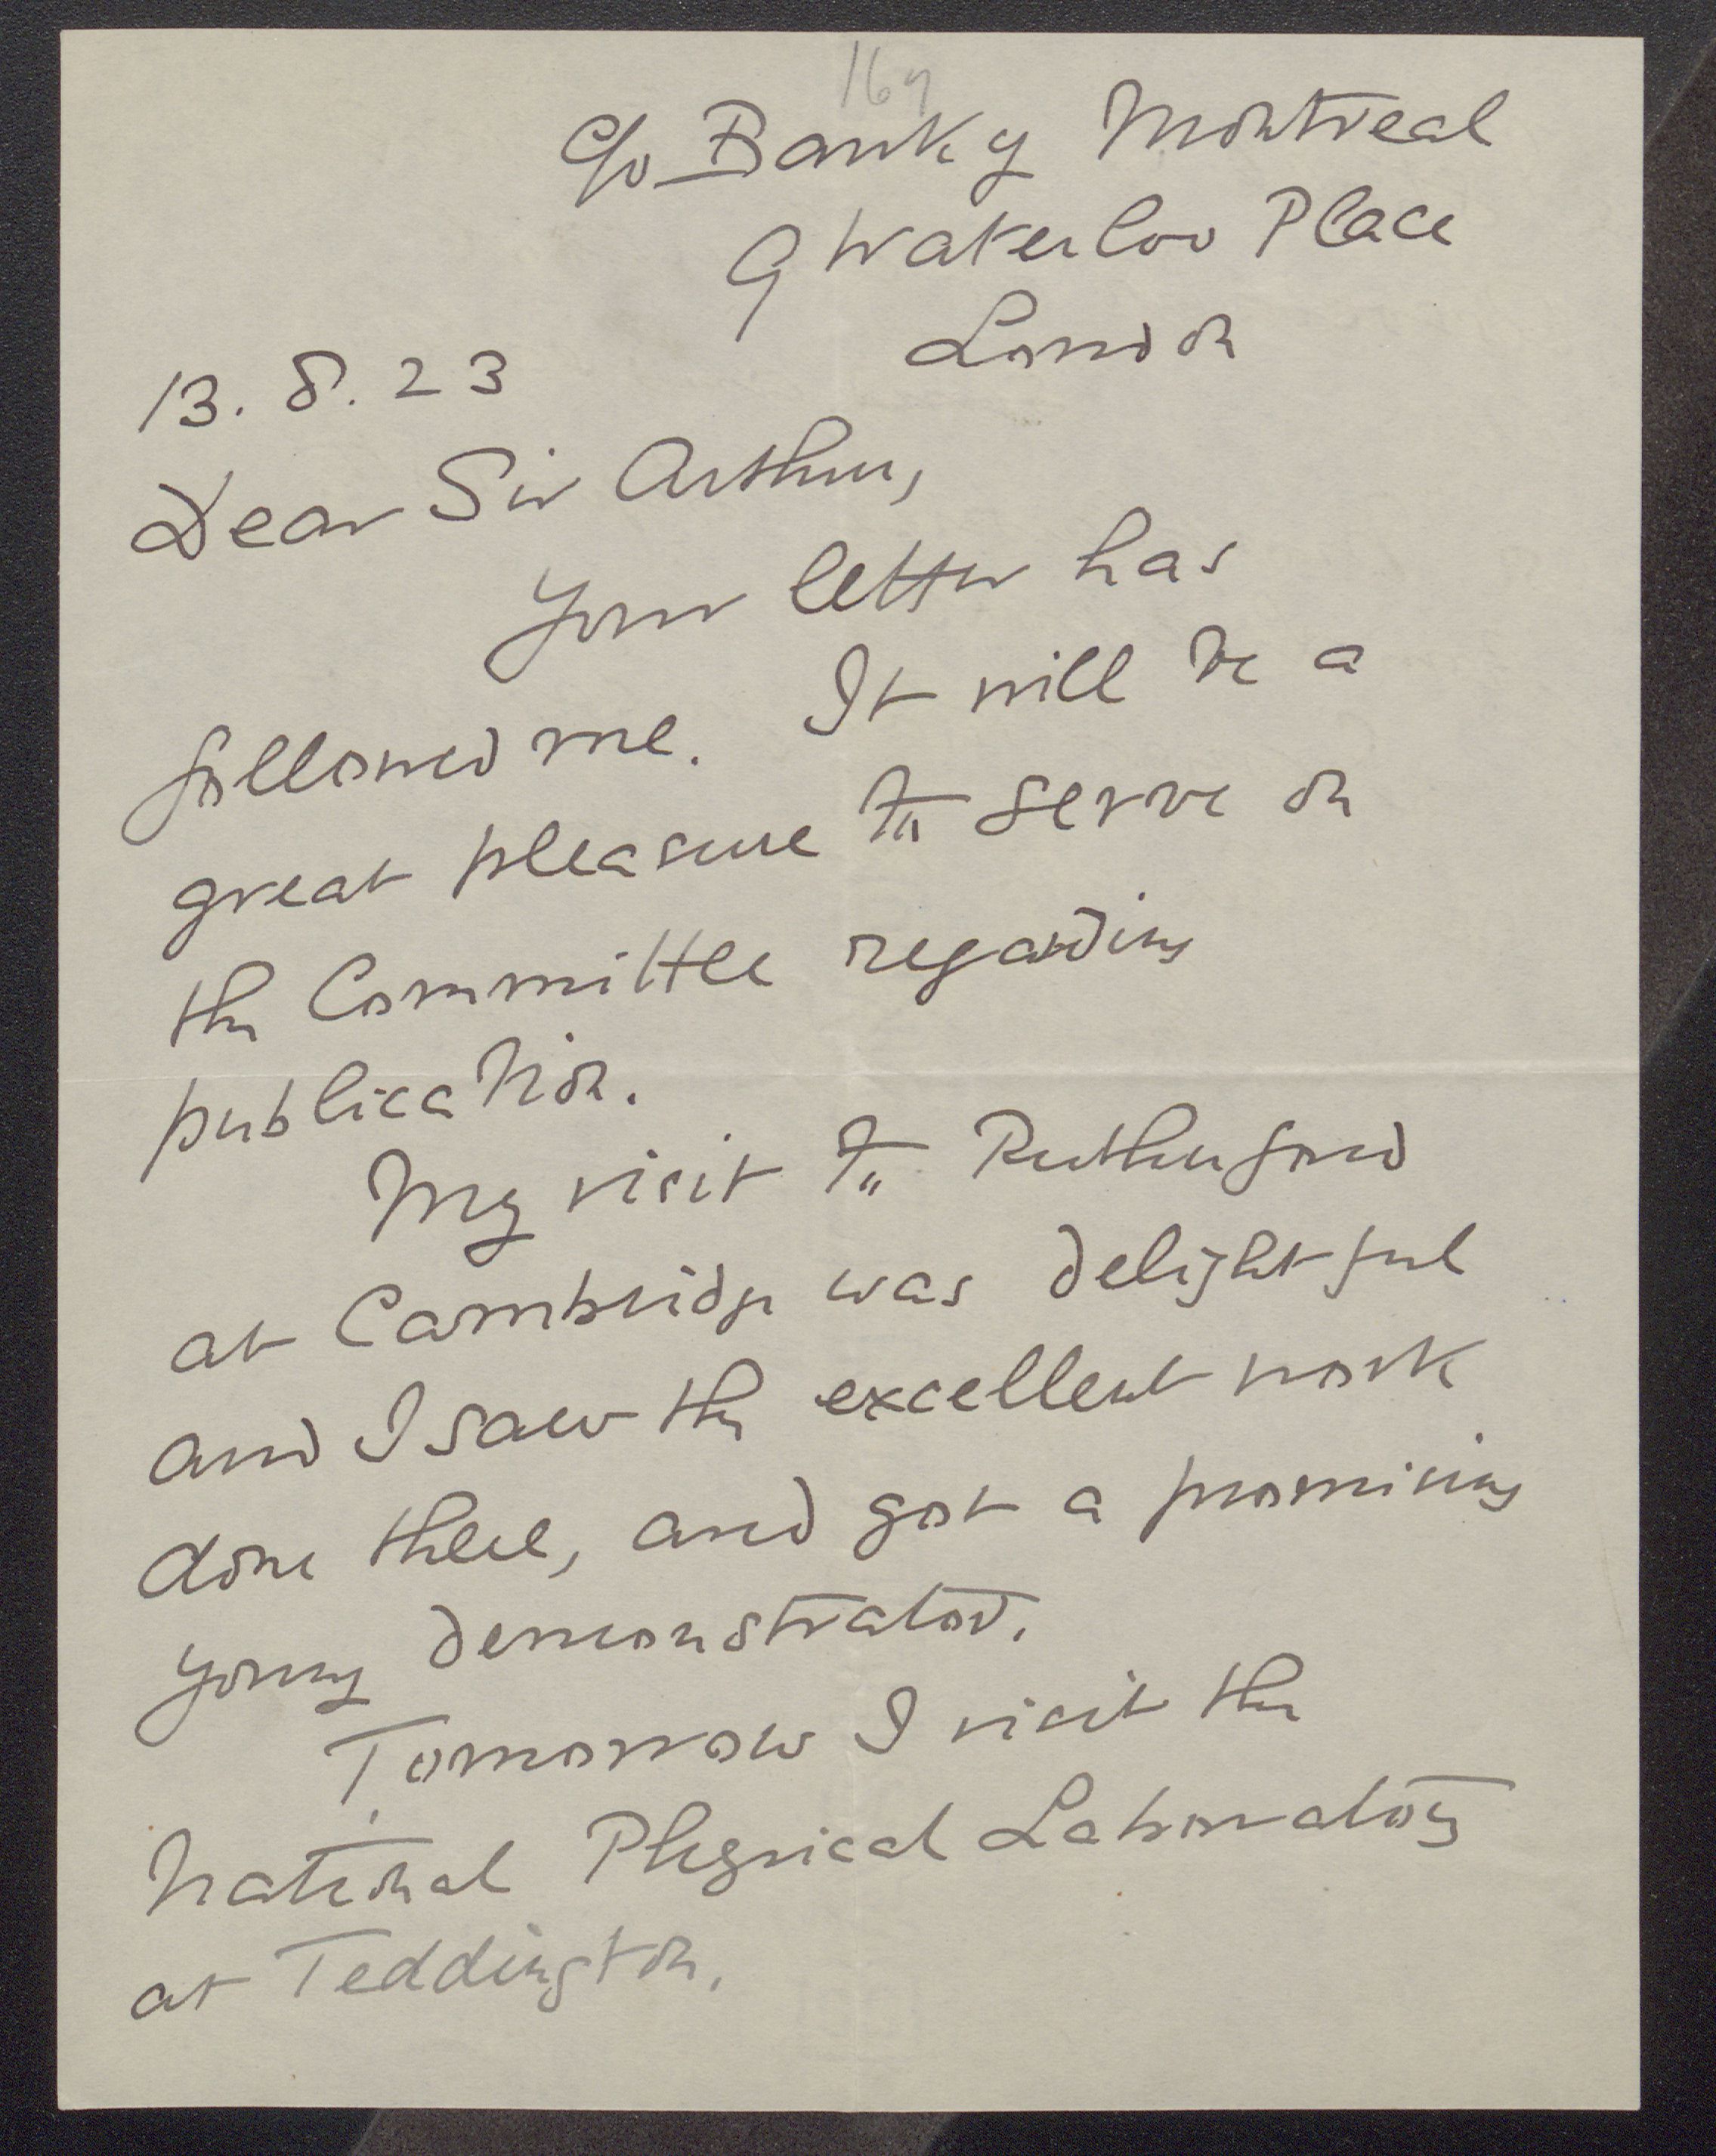 167
c/o Bank of Montreal
9 Waterloo Place
London
13.8.23
Dear Sir Arthur,
Your letter has
followed me. It will be a
great pleasure to serve on
the Committee regarding
publication.
My visit to Rutherford
at Cambridge was delightful
and I saw the excellent work
done there, and got a promising
young demonstrator.
Tomorrow I visit the
National Physical Laboratory
at Teddington.